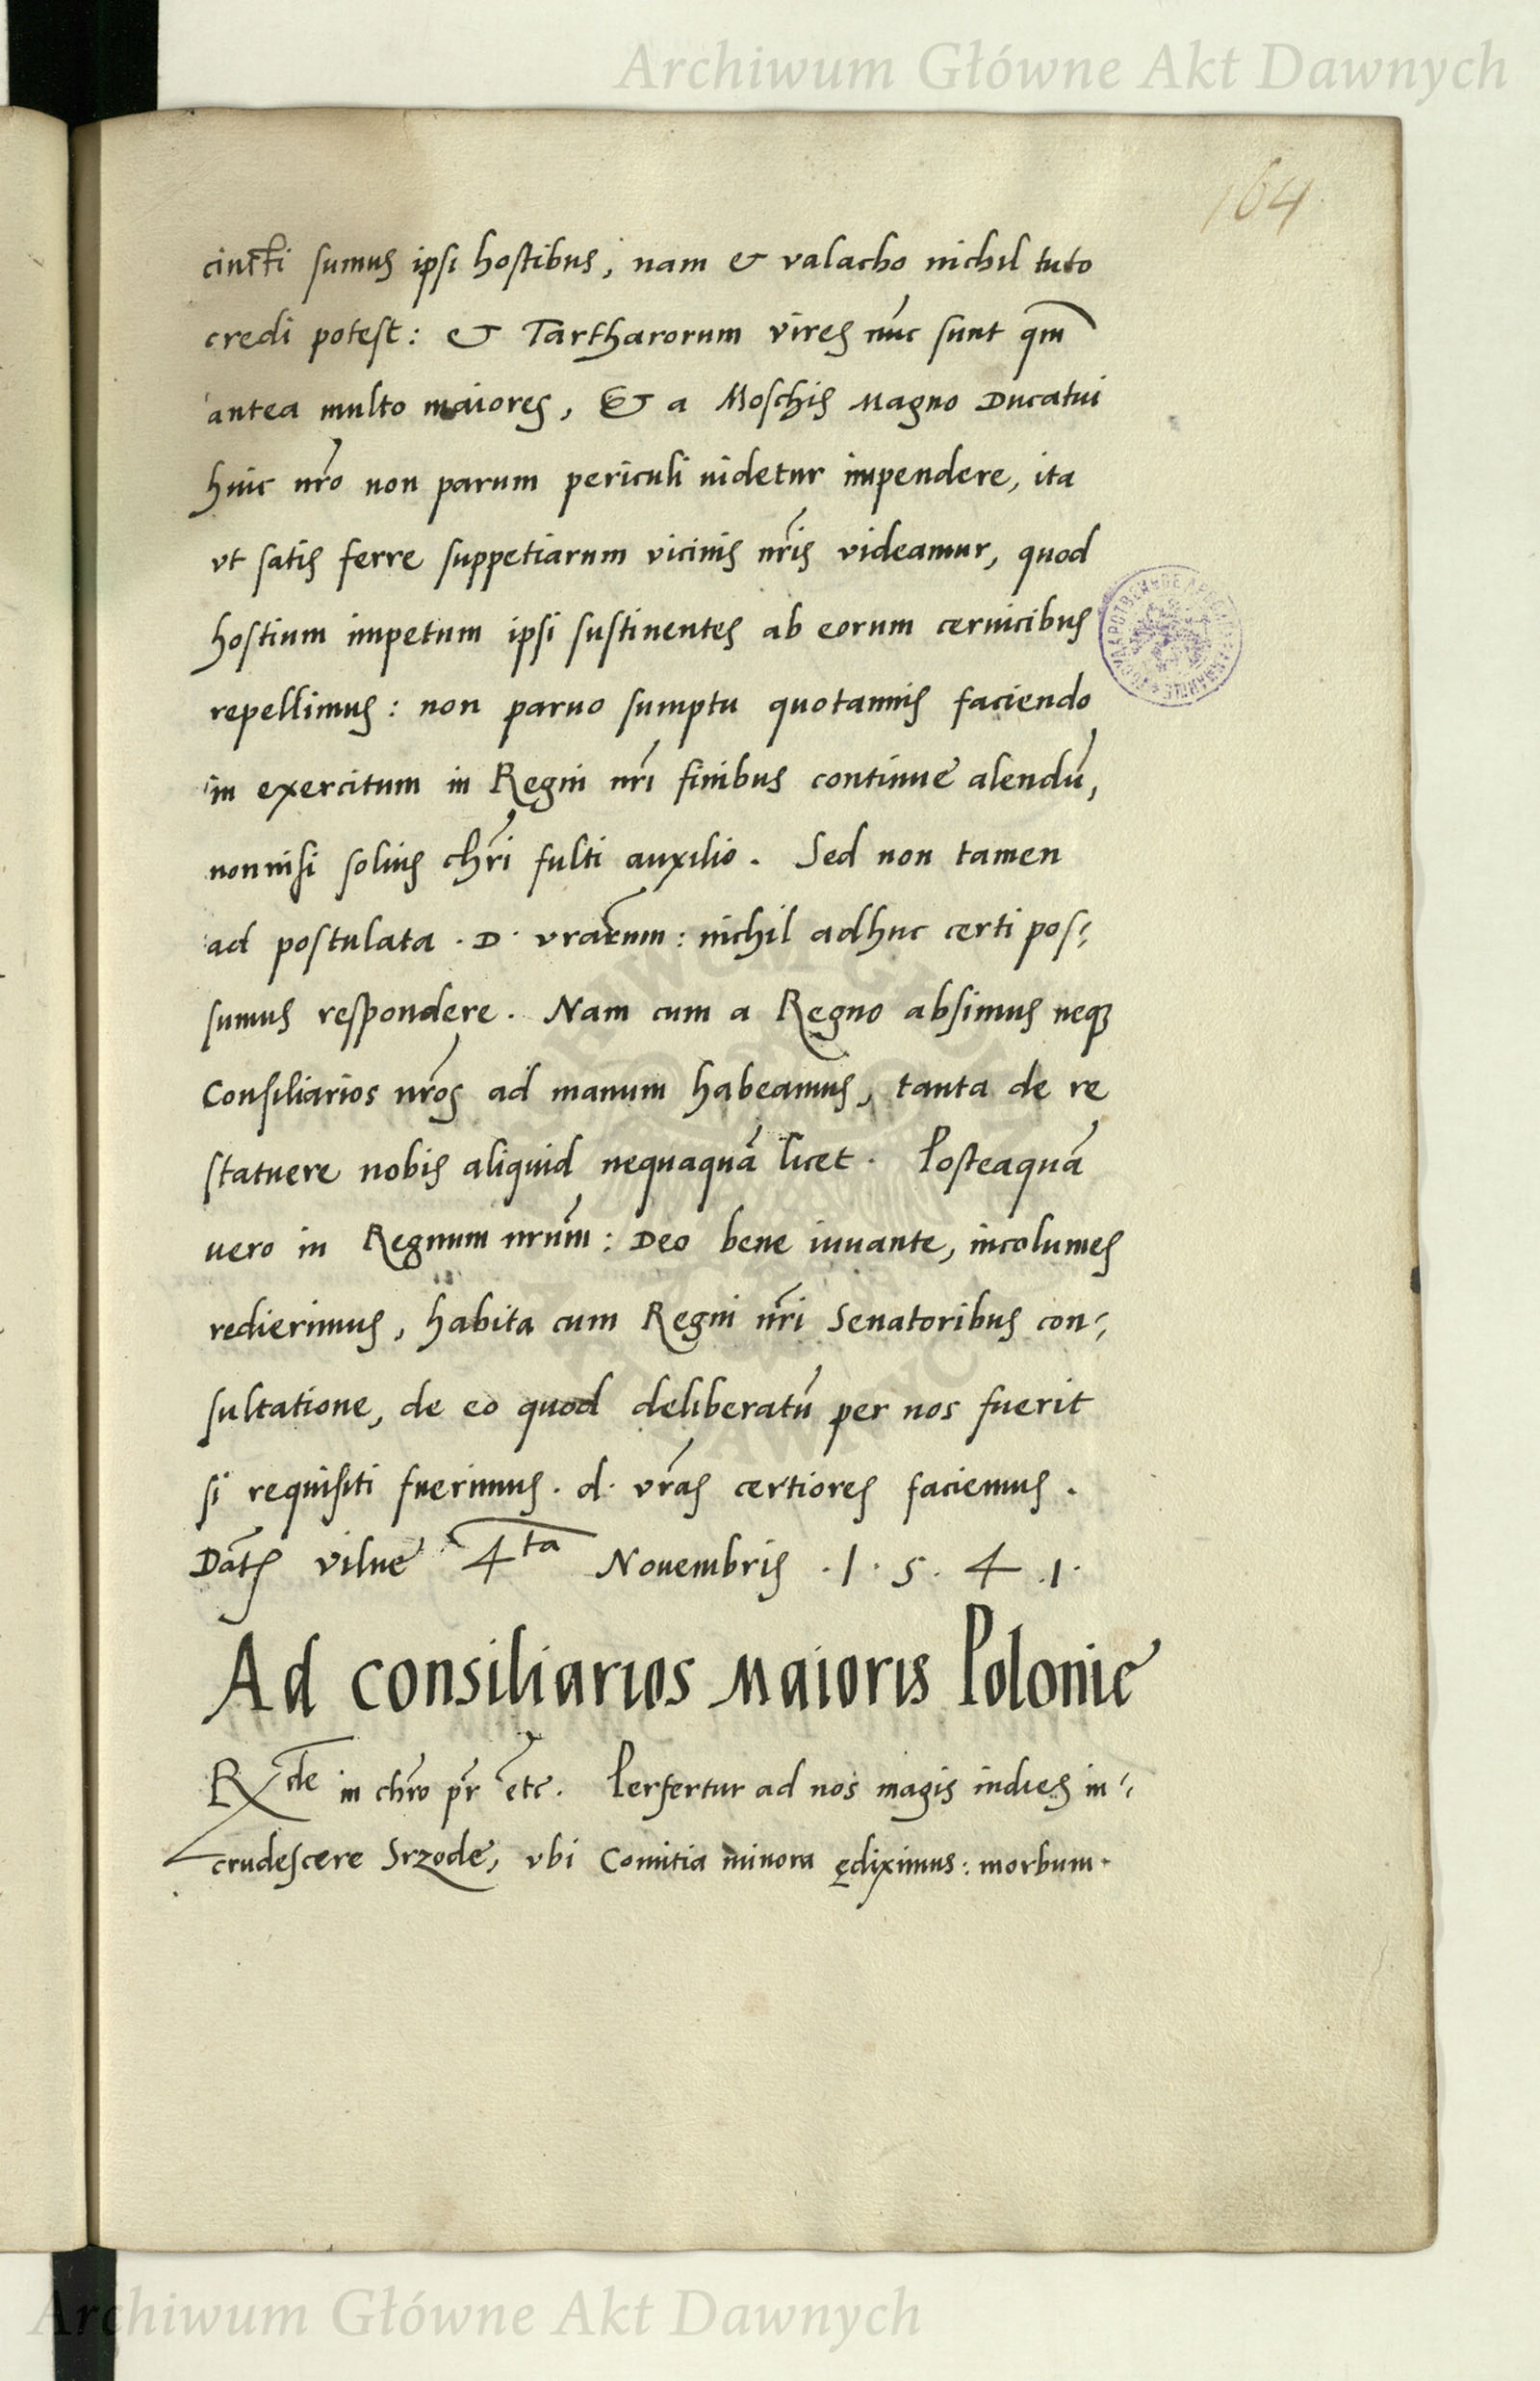 Archiwum Główne Akt Dawnych
164
cincti sumus ipsi hostibus, nam & valacho nichil tuto
credi potest: & Tartharorum vires nūc sunt qm̄
antea multo maiores, & a Moschis Magno Ducatui
huic nr̄o non parum periculi uidetur impendere, ita
vt satis ferre suppetiarum vicinis nr̄is videamur, quod
hostium impetum ipsi sustinentes ab eorum ceruicibus
repellimus: non paruo sumptu quotannis faciendo
in exercitum in Regni nr̄i finibus continue alendū,
nonnisi solius chr̄i fulti auxilio. Sed non tamen
ad postulata . D . vrarum̄: nichil adhuc certi pos-
sumus respondere. Nam cum a Regno absimus neq3
Consiliarios nr̄os ad manum habeamus, tanta de re
statuere nobis aliquid nequaquā licet. Posteaquā
uero in Regnum nrūm: Deo bene iuuante, incolumes
redierimus, habita cum Regni nr̄i Senatoribus con-
sultatione, de eo quod deliberatū per nos fuerit
si requisiti fuerimus . d . vr̄as certiores faciemus.
Dat̄ vilne 4ta Nouembris .1.5.4.1.
Ad consiliarios Maioris Polonie
Rde in chr̄o pr̄ etc. Perfertur ad nos magis indies in-
crudescere Srzode, vbi Comitia minora ędiximus: morbum.
Archiwum Główne Akt Dawnych